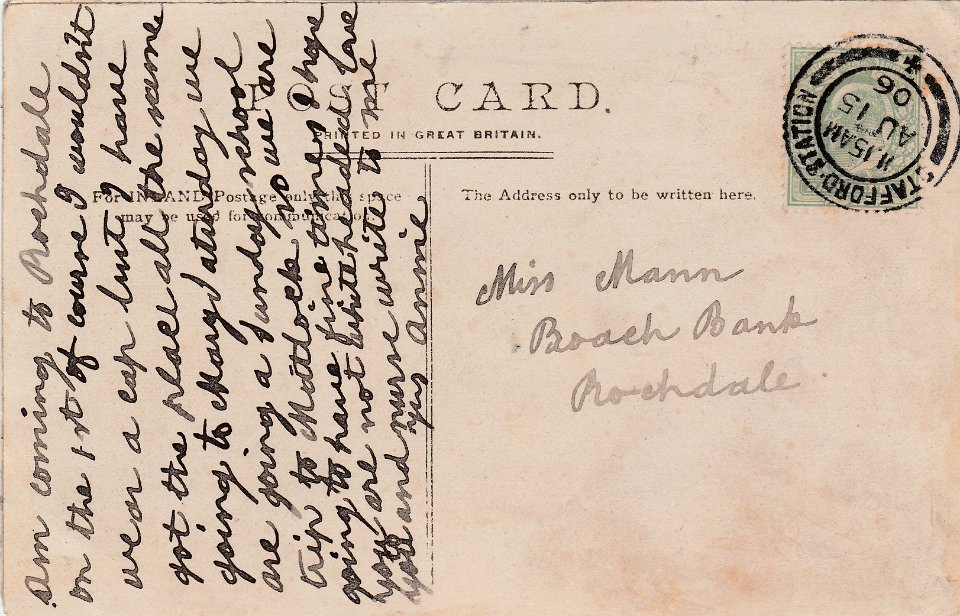 POST CARD.
PRINTED IN GREAT BRITAIN.
For INLAND Postage only the space
may be used for communication
The Address only to be written here.
STAFFORD STATION
11.15AM
AU 15
06
Miss Mann
Broach Bank
Rochdale
am coming to Rochdale
on the 1st of course I wouldn't
wear a cap but I have
got the place all the same
going to Margs Saturday we
are going a Sunday school
trip to Matlock so we are
going to have fine times I hope
you are not white headed love
you and nurse write to me
yrs annie